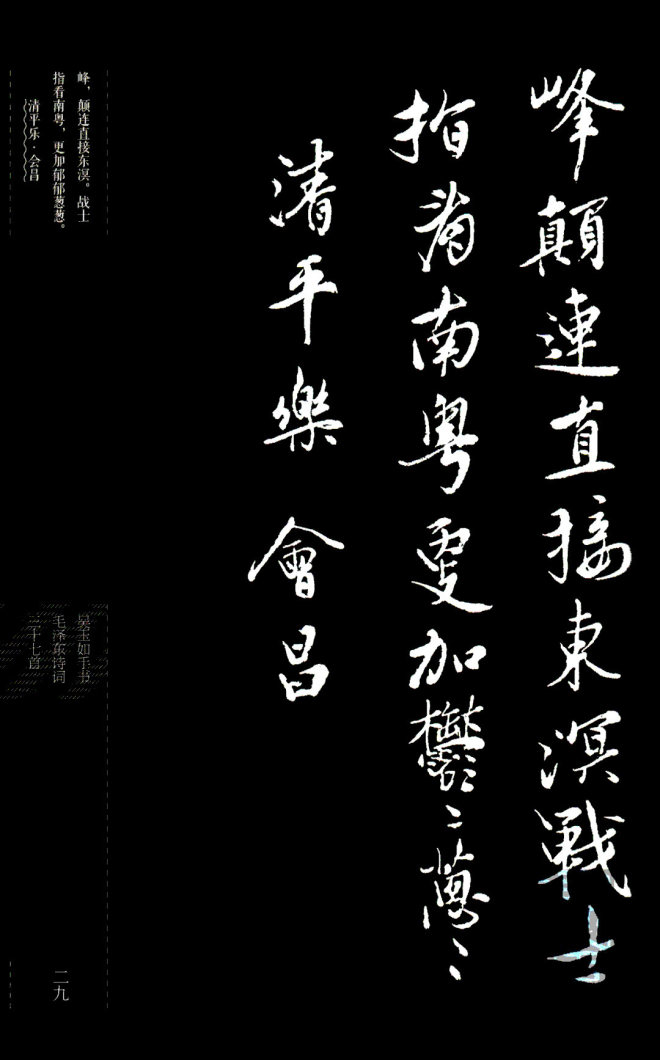 峰顛連直接東溟戰士
指看南粤更加鬱〻蔥〻
清平樂 會昌
峰，颠连直接东溟。战士
指看南粤，更加郁郁葱葱。
清平乐·会昌
吴玉如手书
毛泽东诗词
三十七首
二九